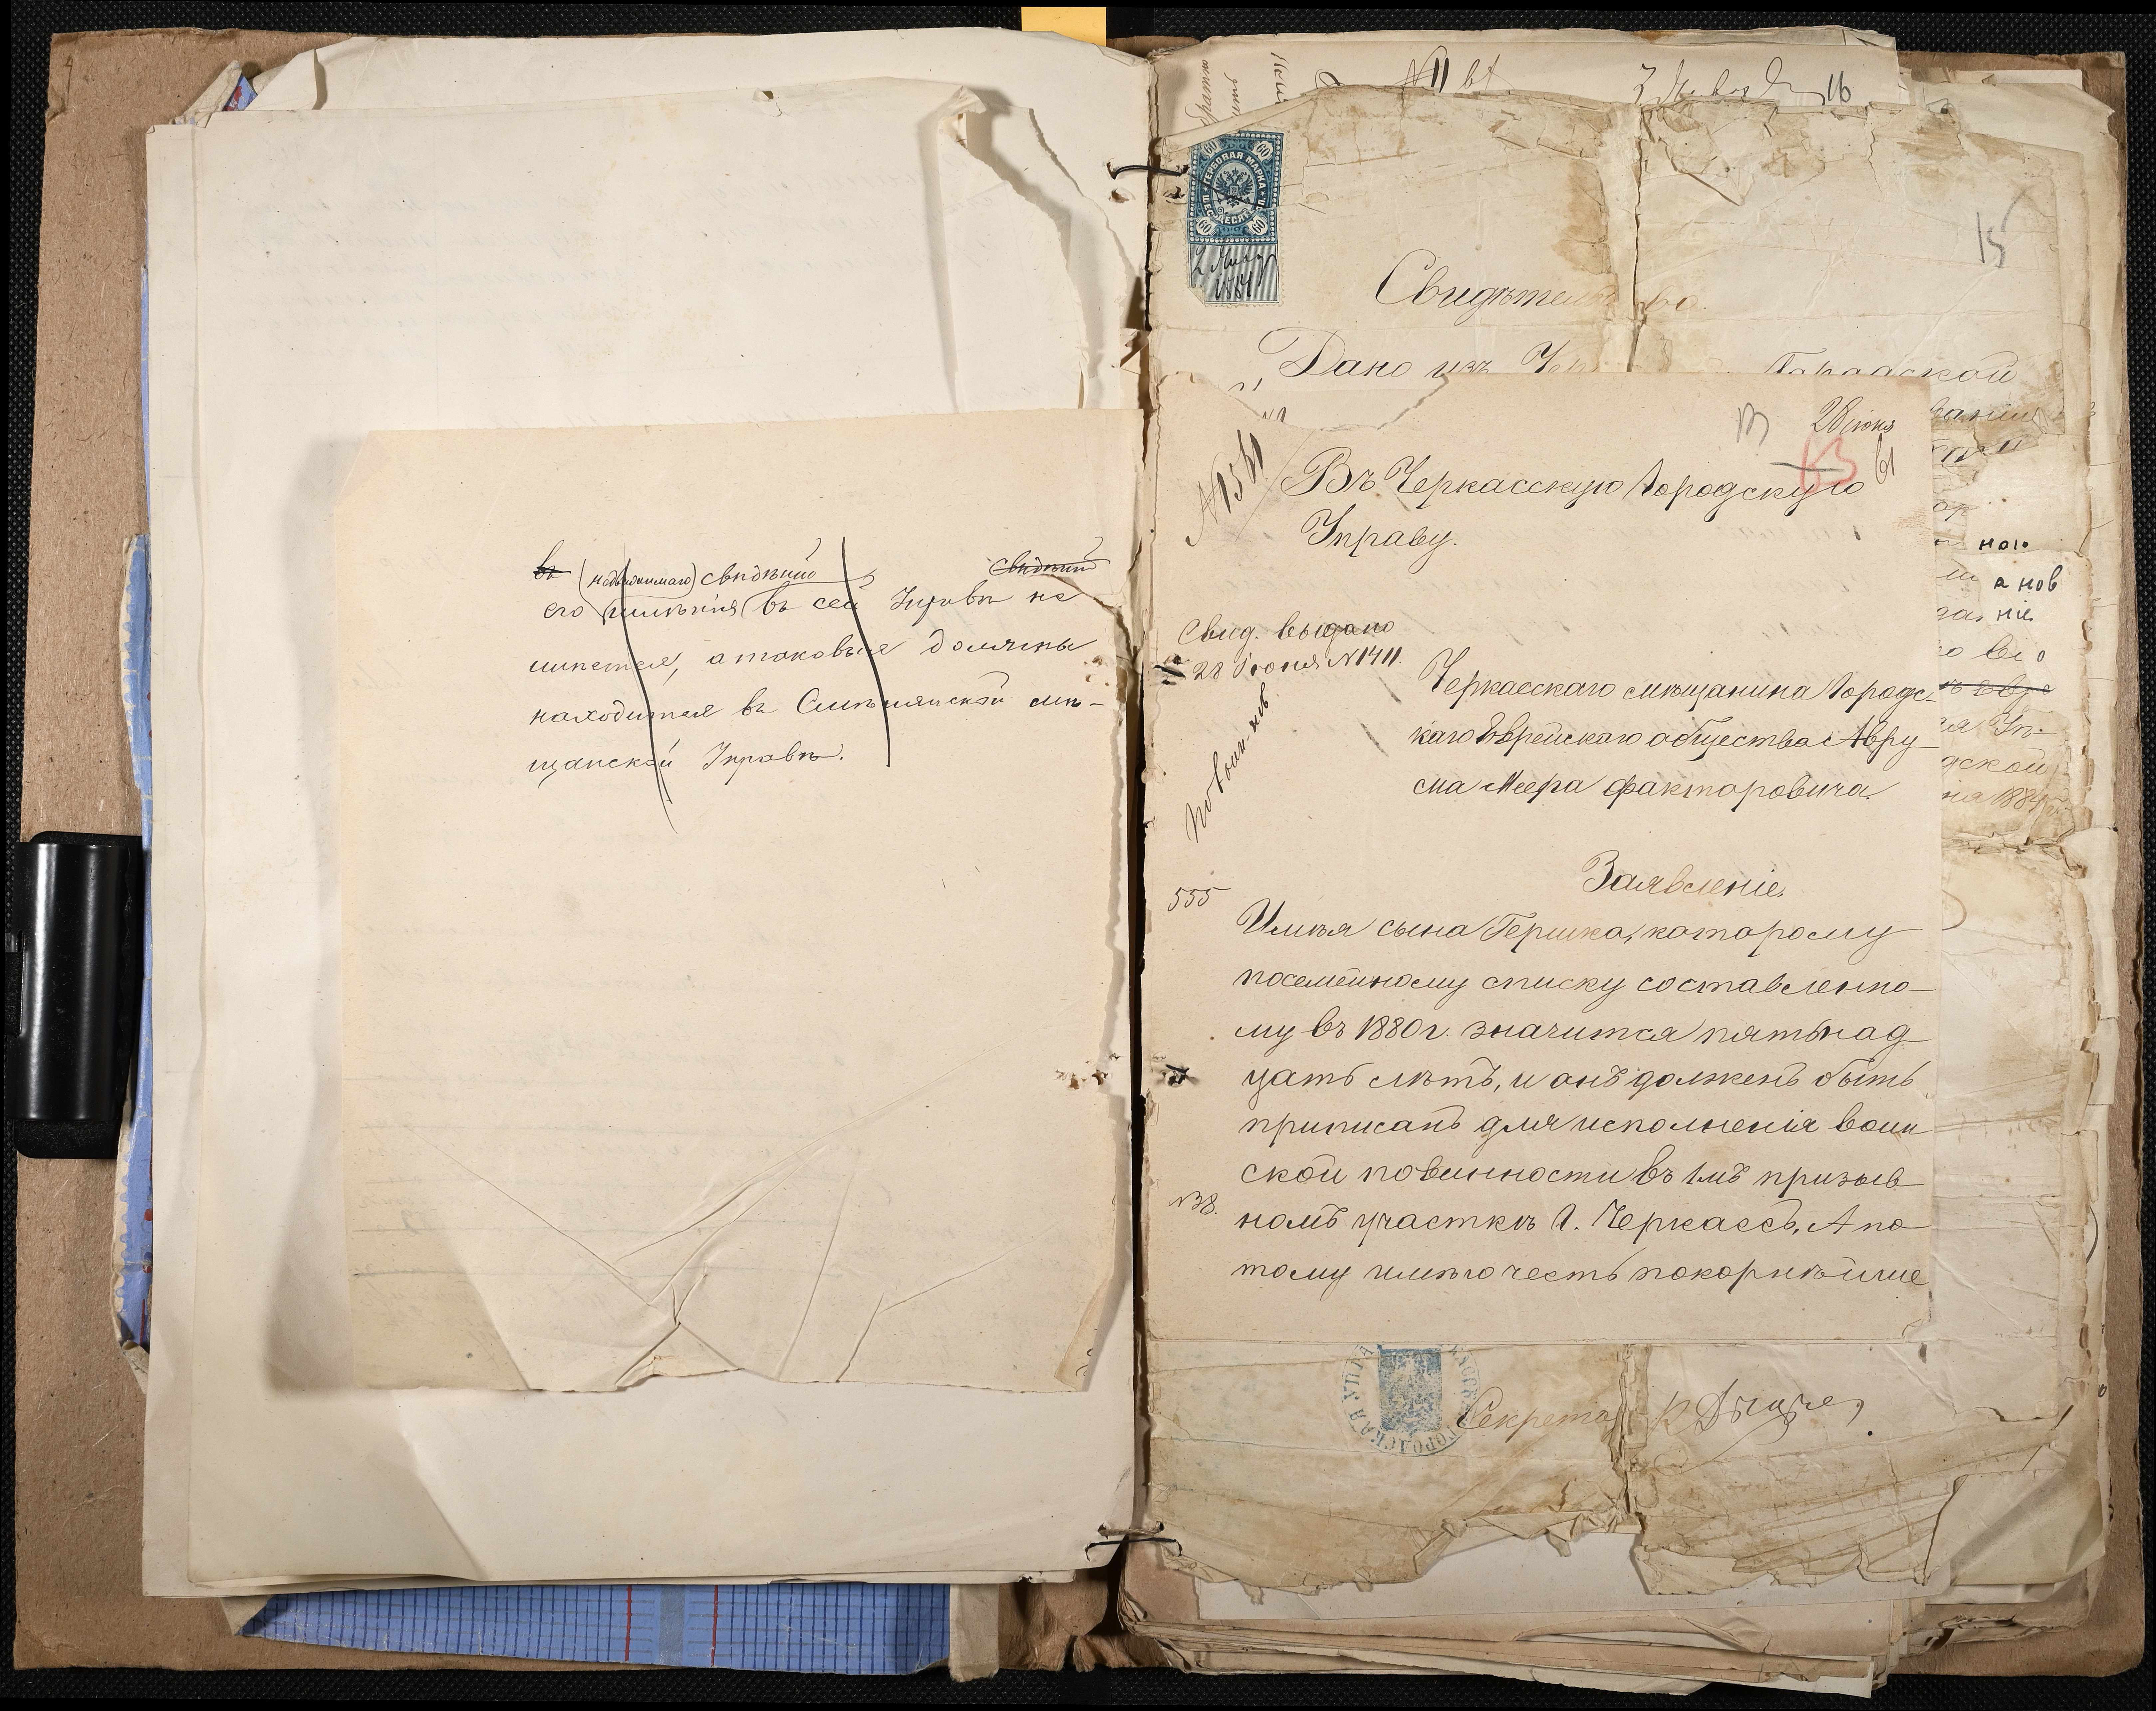 въ (недвижимаго) свѣдѣній свѣдѣній
его имѣнія въ сей Управѣ не
имѣется, а таковыя должны
находиться въ Смѣлянской мѣ-
щанской Управѣ.
№ 11
16
60 60
ГЕРБОВАЯ МАРКА
60 60
2 Янва
1884
15
Свидѣтельство.
Дано изъ Городской
28 іюня
13
Въ Черкасскую Городскую
Управу.
Свид. выдано
28 Іюня № 1411.
Черкасскаго мѣщанина Городс-
каго Еврейскаго общества Авру
ма Меера Факторовича.
Заявленіе.
555
Имѣя сына Гершка, которому
посемейному списку составленно-
му въ 1880 г. значится пятьнад
цать лѣтъ, и онъ долженъ быть
приписанъ для исполненія воин
ской повинности въ 1мъ призыв
№38.
номъ участкѣ г. Черкассъ, А по
тому имѣю честь покорнѣйше
ною
а нов
ніе
дской
1884
ГОРОДСКАЯ УПРА
Секретарь